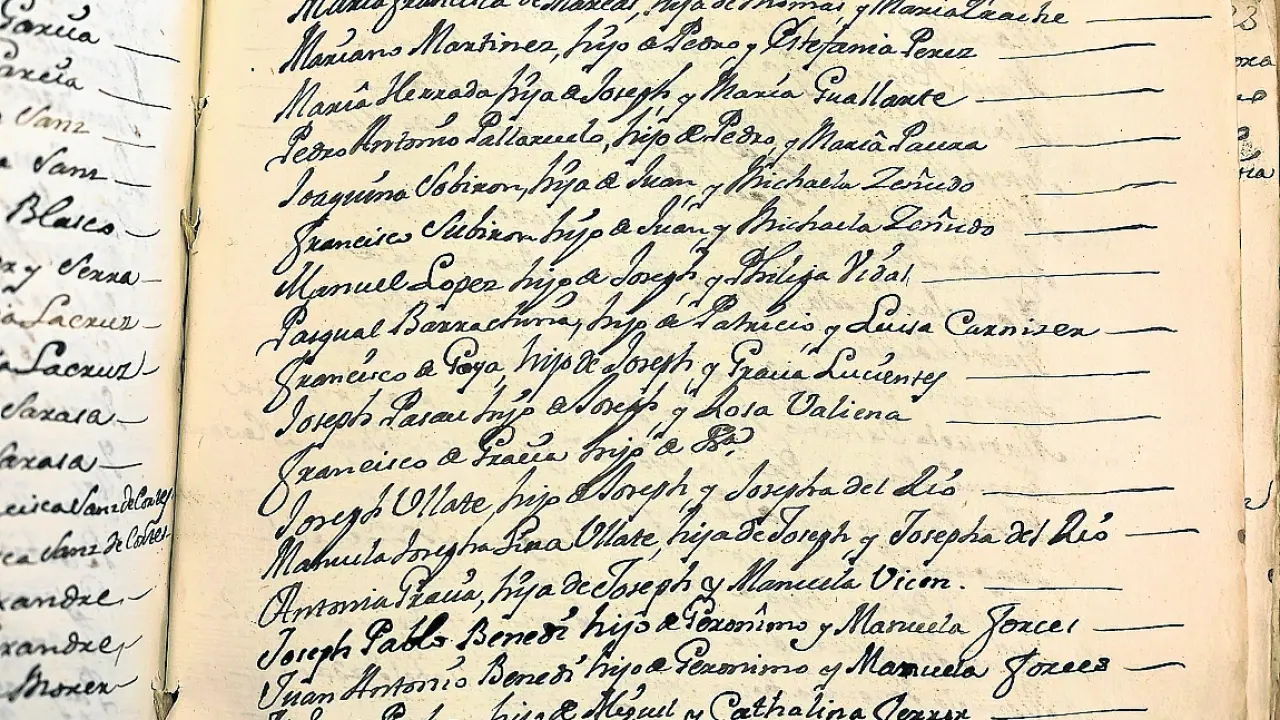 Garcia
Garcia
Sanz
Sanz
Blasco
y Serra
Lacruz
Lacruz
Sarasa
Sarasa
Sanz de Cortes
Sanz de Cortes
Moner
Maria Francisca de Mareas, hija de Thomas, y Maria Urache
Mariano Martinez, hijo de Pedro, y Estefania Perez
Maria Herrada hija de Joseph, y Maria Guallarte
Pedro Antonio Pallaruelo, hijo de Pedro, y Maria Paura
Joaquina Sobiron, hija de Juan y Michaela Zeñudo
Francisco Subiron hijo de Juan, y Michaela Zeñudo
Manuel Lopez hijo de Joseph, y Phelipa Vidal
Pasqual Barrachina, hijo de Patricio, y Luisa Carnizer
Francisco de Goya, hijo de Joseph, y Gracia Lucientes
Joseph Pasau hijo de Joseph, y Rosa Valiena
Francisco de Gracia hijo de
Joseph Ullate, hijo de Joseph, y Josepha del Rio
Manuela Josepha Lina Ullate, hija de Joseph y Josepha del Rio
Antonia Gracia, hija de Joseph y Manuela Vicen.
Joseph Pablo Benedi hijo de Geronimo y Manuela Forces
Juan Antonio Benedi hijo de Geronimo y Manuela Forces
hijo de Miguel y Cathalina Ferrer